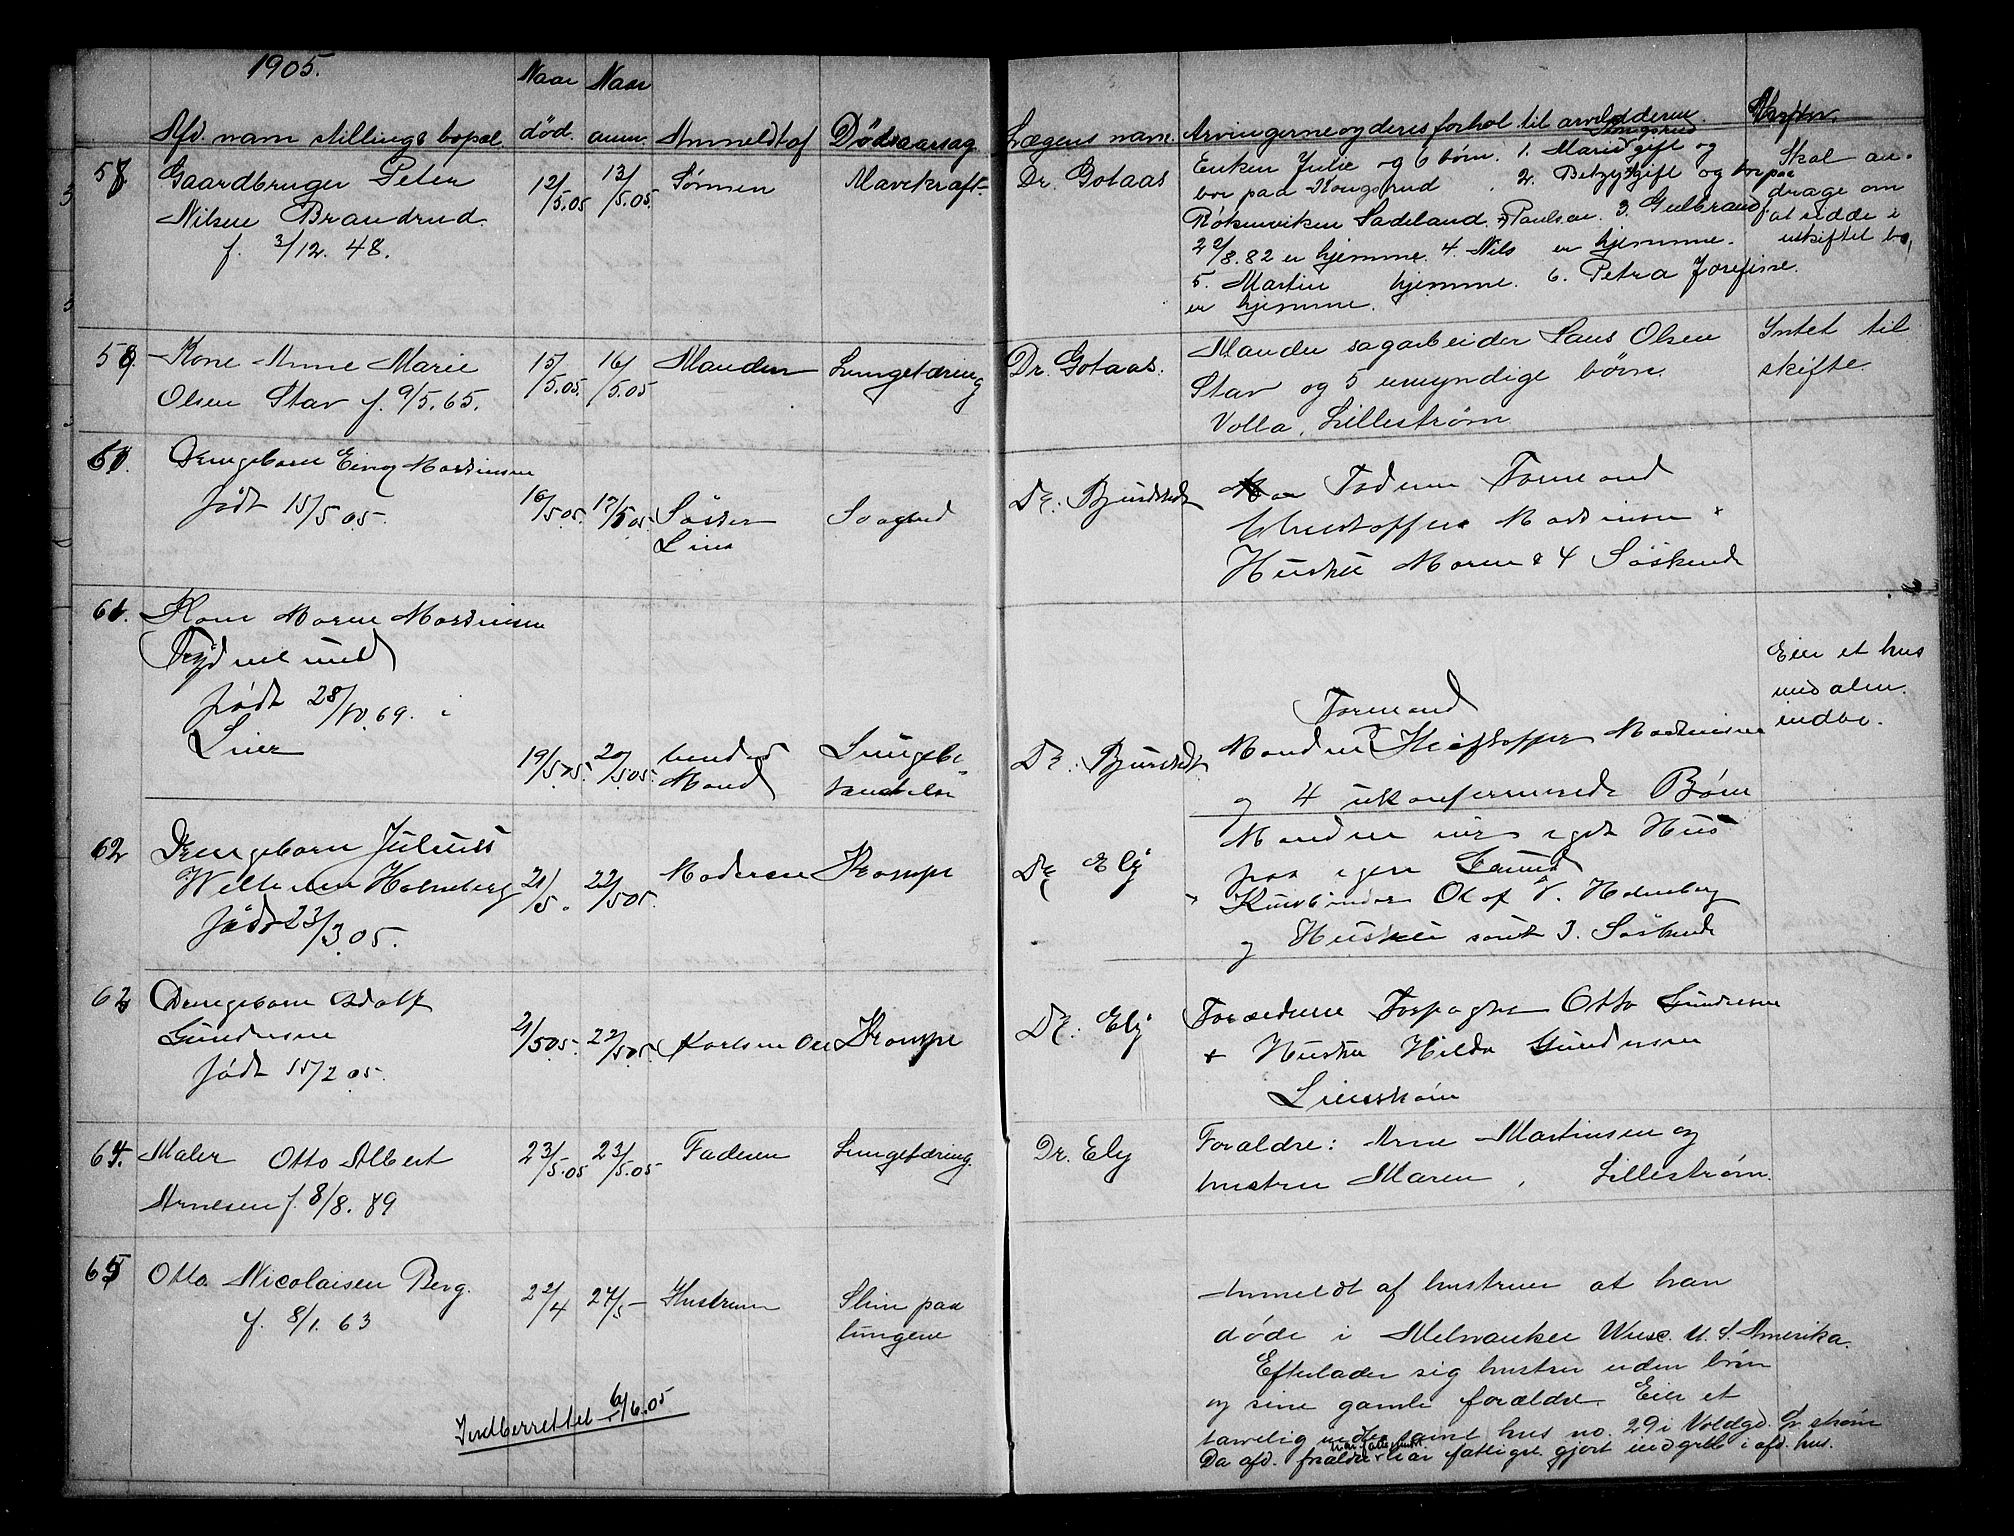 1905.
Afd. navn stilling & bopæl. Naar død. Naar anm. Anmeldt af Dødsaarsag Lægens navn. Arvingerne og deres forhol til arveladderne.
58 Gaardbruger Peter
Nilsen Brandrud.
f. 3/12. 48.
12/5.05 13/5.05. Sønnen Mavekræft Dr. Gotaas
Enken Julie og 6 børn. 1. Marie gift og
bor paa Kongsrud. 2. Betzy gift og bor paa
Røkenviken Hadeland. Paulsen. 3. Gulbrand f.
22/8.82 er hjemme. 4. Nils er hjemme.
5. Martin hjemme. 6. Petra Josefine
er hjemme.
Skal an-
drage om
at sidde i
uskiftet bo,
59. Kone Anne Marie
Olsen Stav f. 9/5.65.
15/5.05. 16/5.05 Manden Lungetæring Dr. Gotaas.
Manden sagarbeider Laus Olsen
Stav og 5 umyndige børn.
Volla, Lillestrøm
Intet til
skifte.
60. Drengebarn Einar Martinsen
født 15/5 05.
16/5 05. 17/5 05. Søster
Lina
Svaghed Dr. Bjurstedt
Faderen Formand
Christoffer Martinsen
Hustru Maren & 4 Søskende
61. Kone Maren Martinsen
født 28/10 69. i
Lier
19/5 05. 20/5 05. hendes
Mand
Lungebe-
tændelse
Dr. Bjurstedt
Formand
Manden Kristoffer Martinsen
og 4 ukonfirmerede Børn
Eier et hus
med alm.
indbo.
62 Drengebarn Julius
Wilhelm Holmberg
født 23/3 05.
21/5. 22/5 05. Moderen Krampe Dr. Ely
Manden eier eget Hus
paa egen Grund
Olof V. Holmberg
og Hustru samt 3. Søskende
63 Drengebarn Adolf
Gundersen
født 15/2 05.
21/5 05. 22/5 05. Karlsen Krampe Dr. Ely
Forældrene Otto Gundersen
+ Hustru Hilda Gundersen
Lillestrøm
64. Maler Otto Albert
Arnesen f. 8/8. 89
23/5.05 23/5.05 Faderen Lungetæring. Dr. Ely
Forældre: Arne Martinsen og
hustru Maren, Lillestrøm.
65 Otto Nicolaisen Berg.
f. 8/1. 63
22/4 27/5 Hustruen Slim paa
lungene
Anmeldt af hustruen at han
døde i Milwaukee Wisc. U. S. Amerika.
Efterlader sig hustru uden børn
og sine gamle forældre. Eier et
hus no. 29 i Voldgd. strøm
Da afd. forældre har fattigst gjort udgift i afd. hus.
Indberrettet 6/6.05